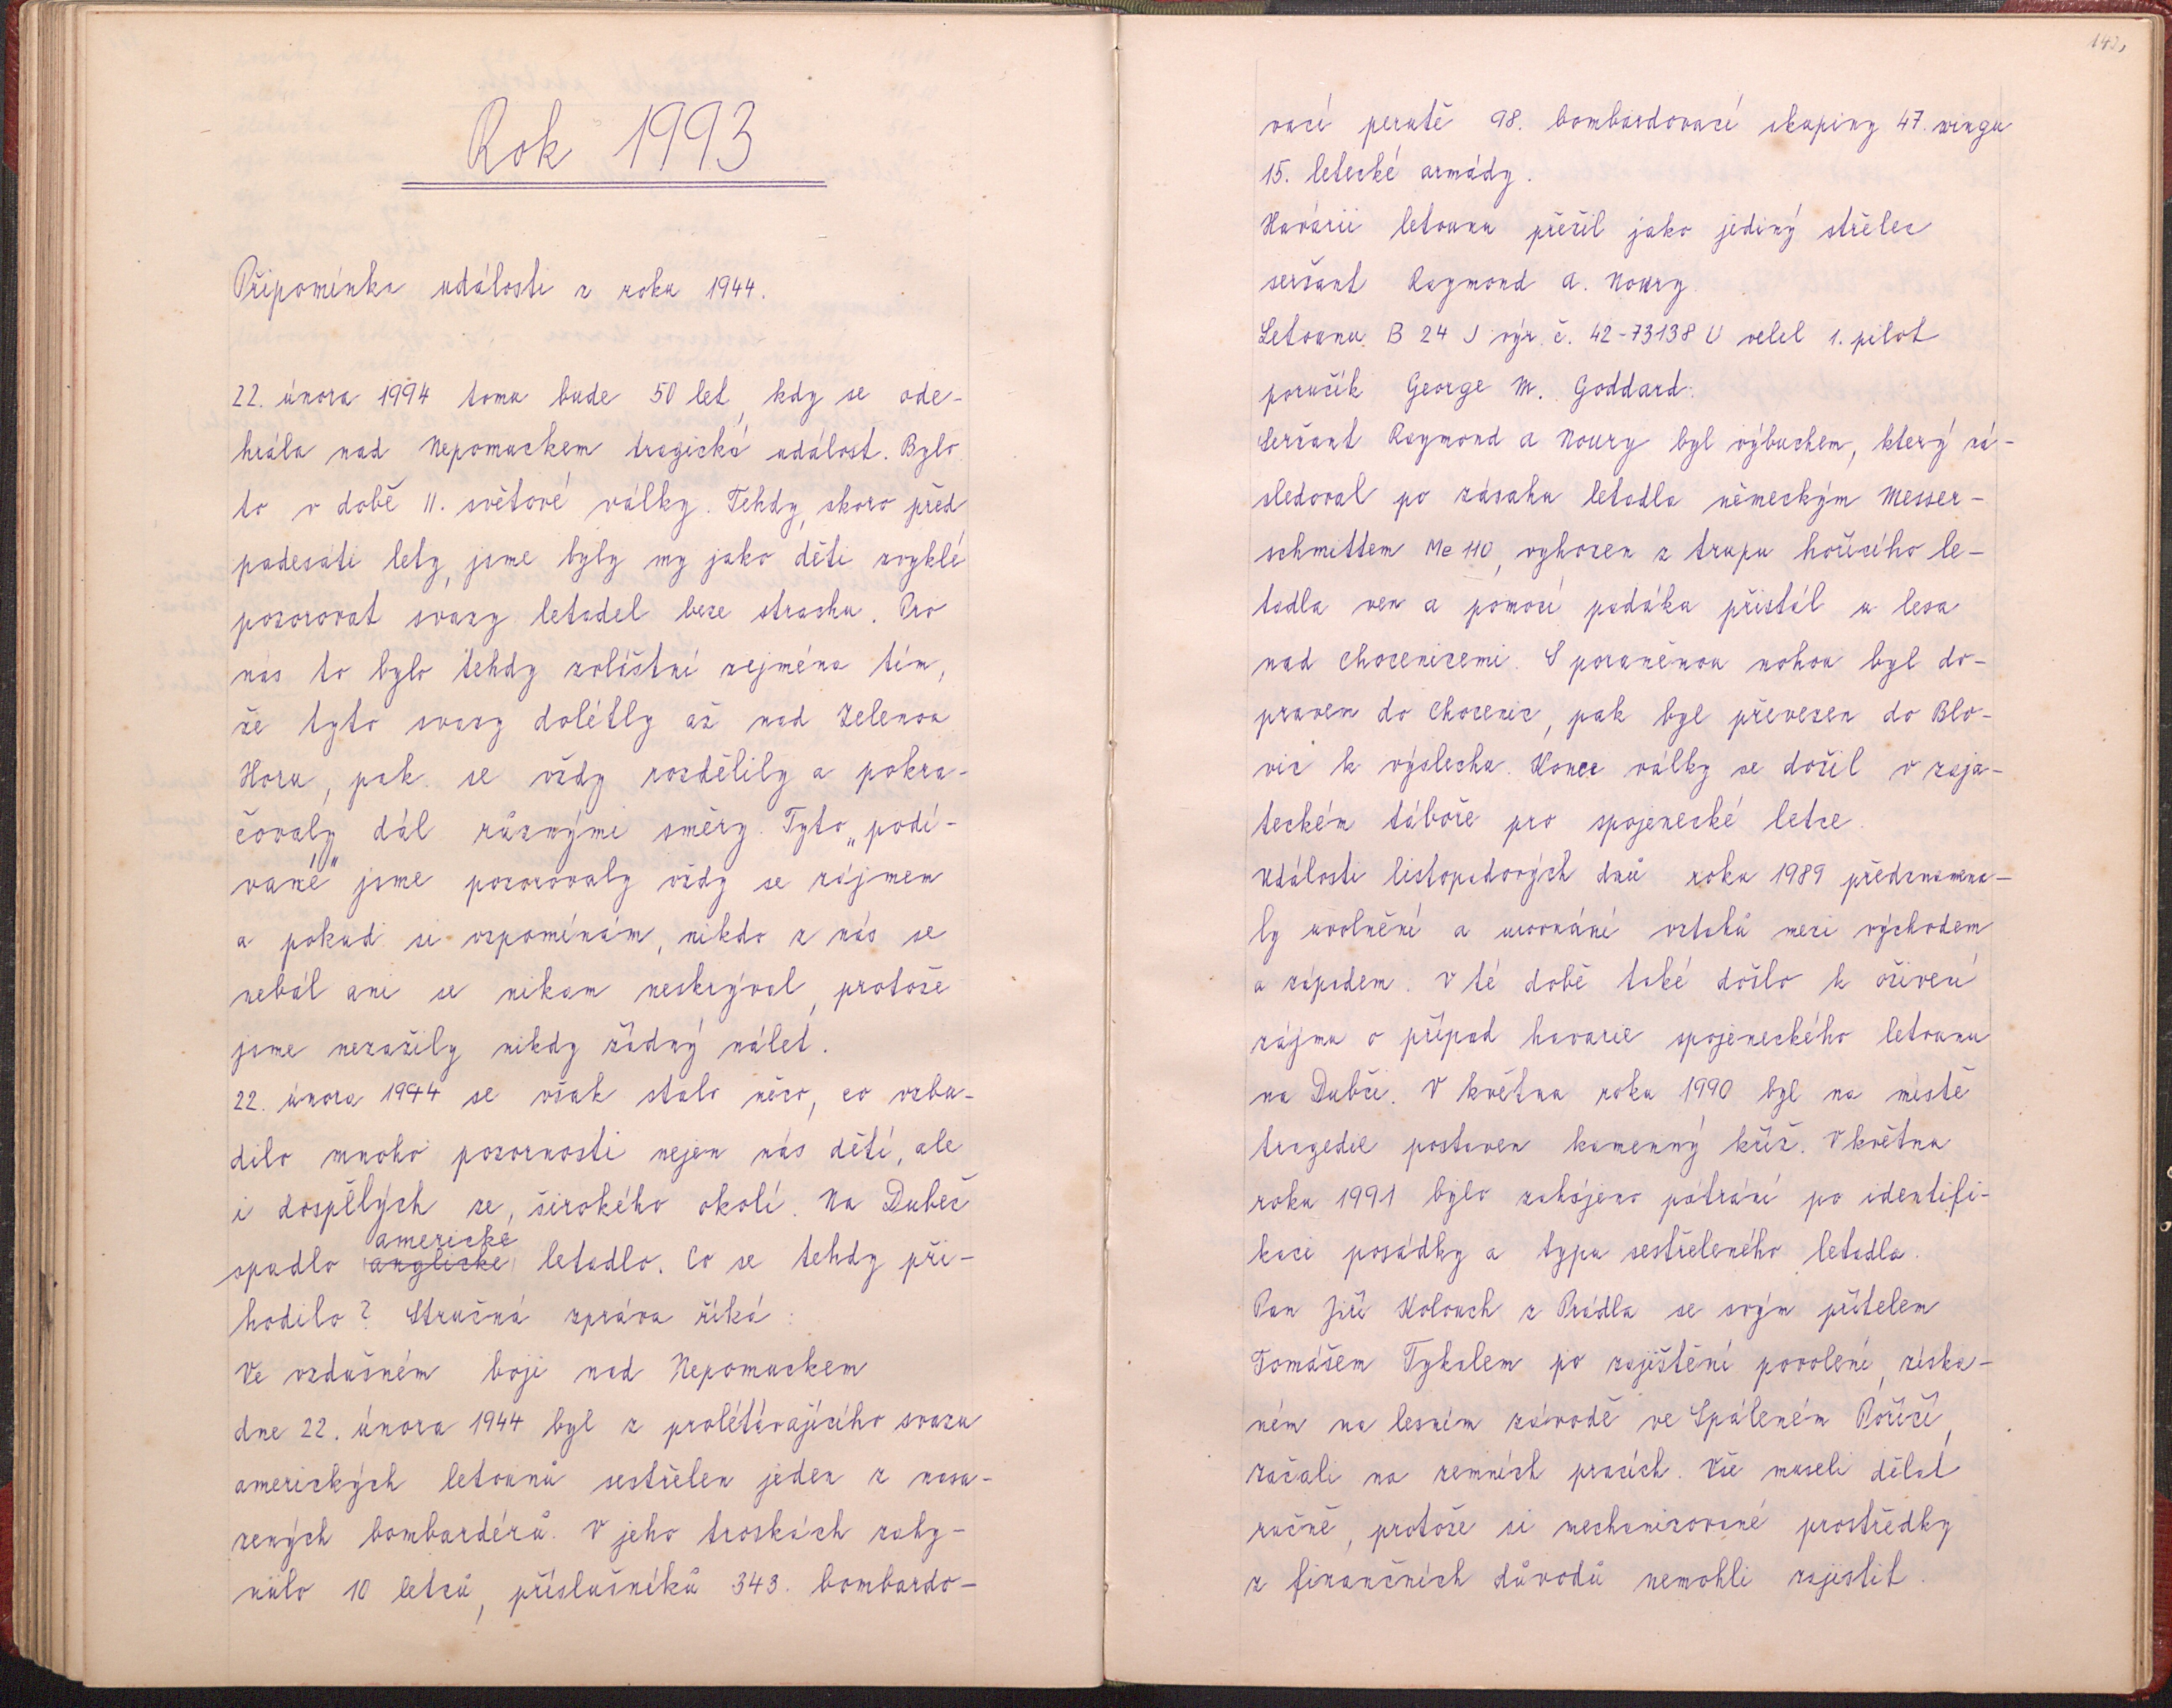 Rok 1993
Připomínka události z roku 1944.
22. února 1994 tomu bude 50 let, kdy se ode-
hrála nad Nepomuckem tragická událost. Bylo
to v době II. světové války. Tehdy, skoro před
padesáti lety, jsme byly my jako děti zvyklé
pozorovat svazy letadel beze strachu. Pro
nás to bylo tehdy zvláštní zejména tím,
že tyto svazy dolétly až nad Zelenou
Horu, pak se vždy rozdělily a pokra-
čovaly dál různými směry. Tyto „podí-
vané" jsme pozorovaly vždy se zájmem
a pokud si vzpomínám, nikdo z nás se
nebál ani se nikam neskrýval, protože
jsme nezažily nikdy žádný nálet.
22. února 1944 se však stalo něco, co vzbu-
dilo mnoho pozornosti nejen nás dětí, ale
i dospělých ze širokého okolí. Na Dubeč
americké
spadlo anglické letadlo. Co se tehdy při-
hodilo? Stručná zpráva říká:
Ve vzdušném boji nad Nepomuckem
dne 22. února 1944 byl z prolétávajícího svazu
amerických letounů sestřelen jeden z nasa-
zených bombardérů. V jeho troskách zahy-
nulo 10 letců, příslušníků 343. bombardo-
142,
vací perutě 98. bombardovací skupiny 47. wingu
15. letecké armády.
Havárii letounu přežil jako jediný střelec
seržant Raymond A. Noury.
Letounu B 24 J výr. č. 42-73138 U velel 1. pilot
poručík George M. Goddard.
Seržant Raymond A Noury byl výbuchem, který ná-
sledoval po zásahu letadla německým Messer-
schmittem Me 110, vyhozen z trupu hořícího le-
tadla ven a pomocí padáku přistál u lesa
nad Chocenicemi. S poraněnou nohou byl do-
praven do Chocenic, pak byl převezen do Blo-
vic k výslechu. Konce války se dožil v zaja-
teckém táboře pro spojenecké letce.
Události listopadových dnů roku 1989 předznamena-
ly uvolnění a urovnání vztahů mezi východem
a západem. V té době také došlo k oživení
zájmu o případ havarie spojeneckého letounu
na Dubči. V květnu roku 1990 byl na místě
tragedie postaven kamenný kříž. V květnu
roku 1991 bylo zahájeno pátrání po identifi-
kaci posádky a typu sestřeleného letadla.
Pan Jiří Kolouch z Prádla se svým přítelem
Tomášem Tykalem po zajištění povolení, získa-
ném na lesním závodě ve Spáleném Poříčí,
začali na zemních pracích. Vše museli dělat
ručně, protože si mechanizované prostředky
z finančních důvodů nemohli zajistit.